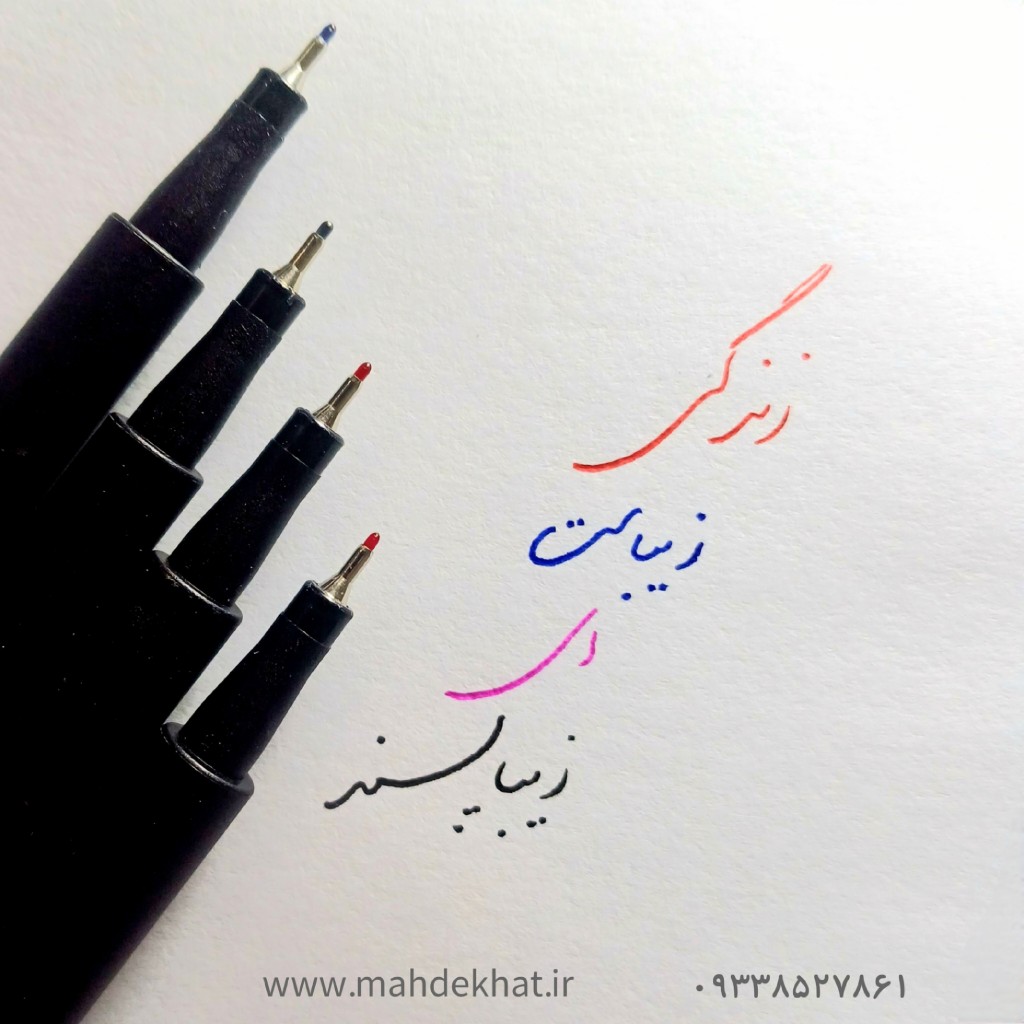 زندگی
زیباست
ای
زیباپسند
www.mahdekhat.ir ۰۹۳۳۸۵۲۷۸۶۱